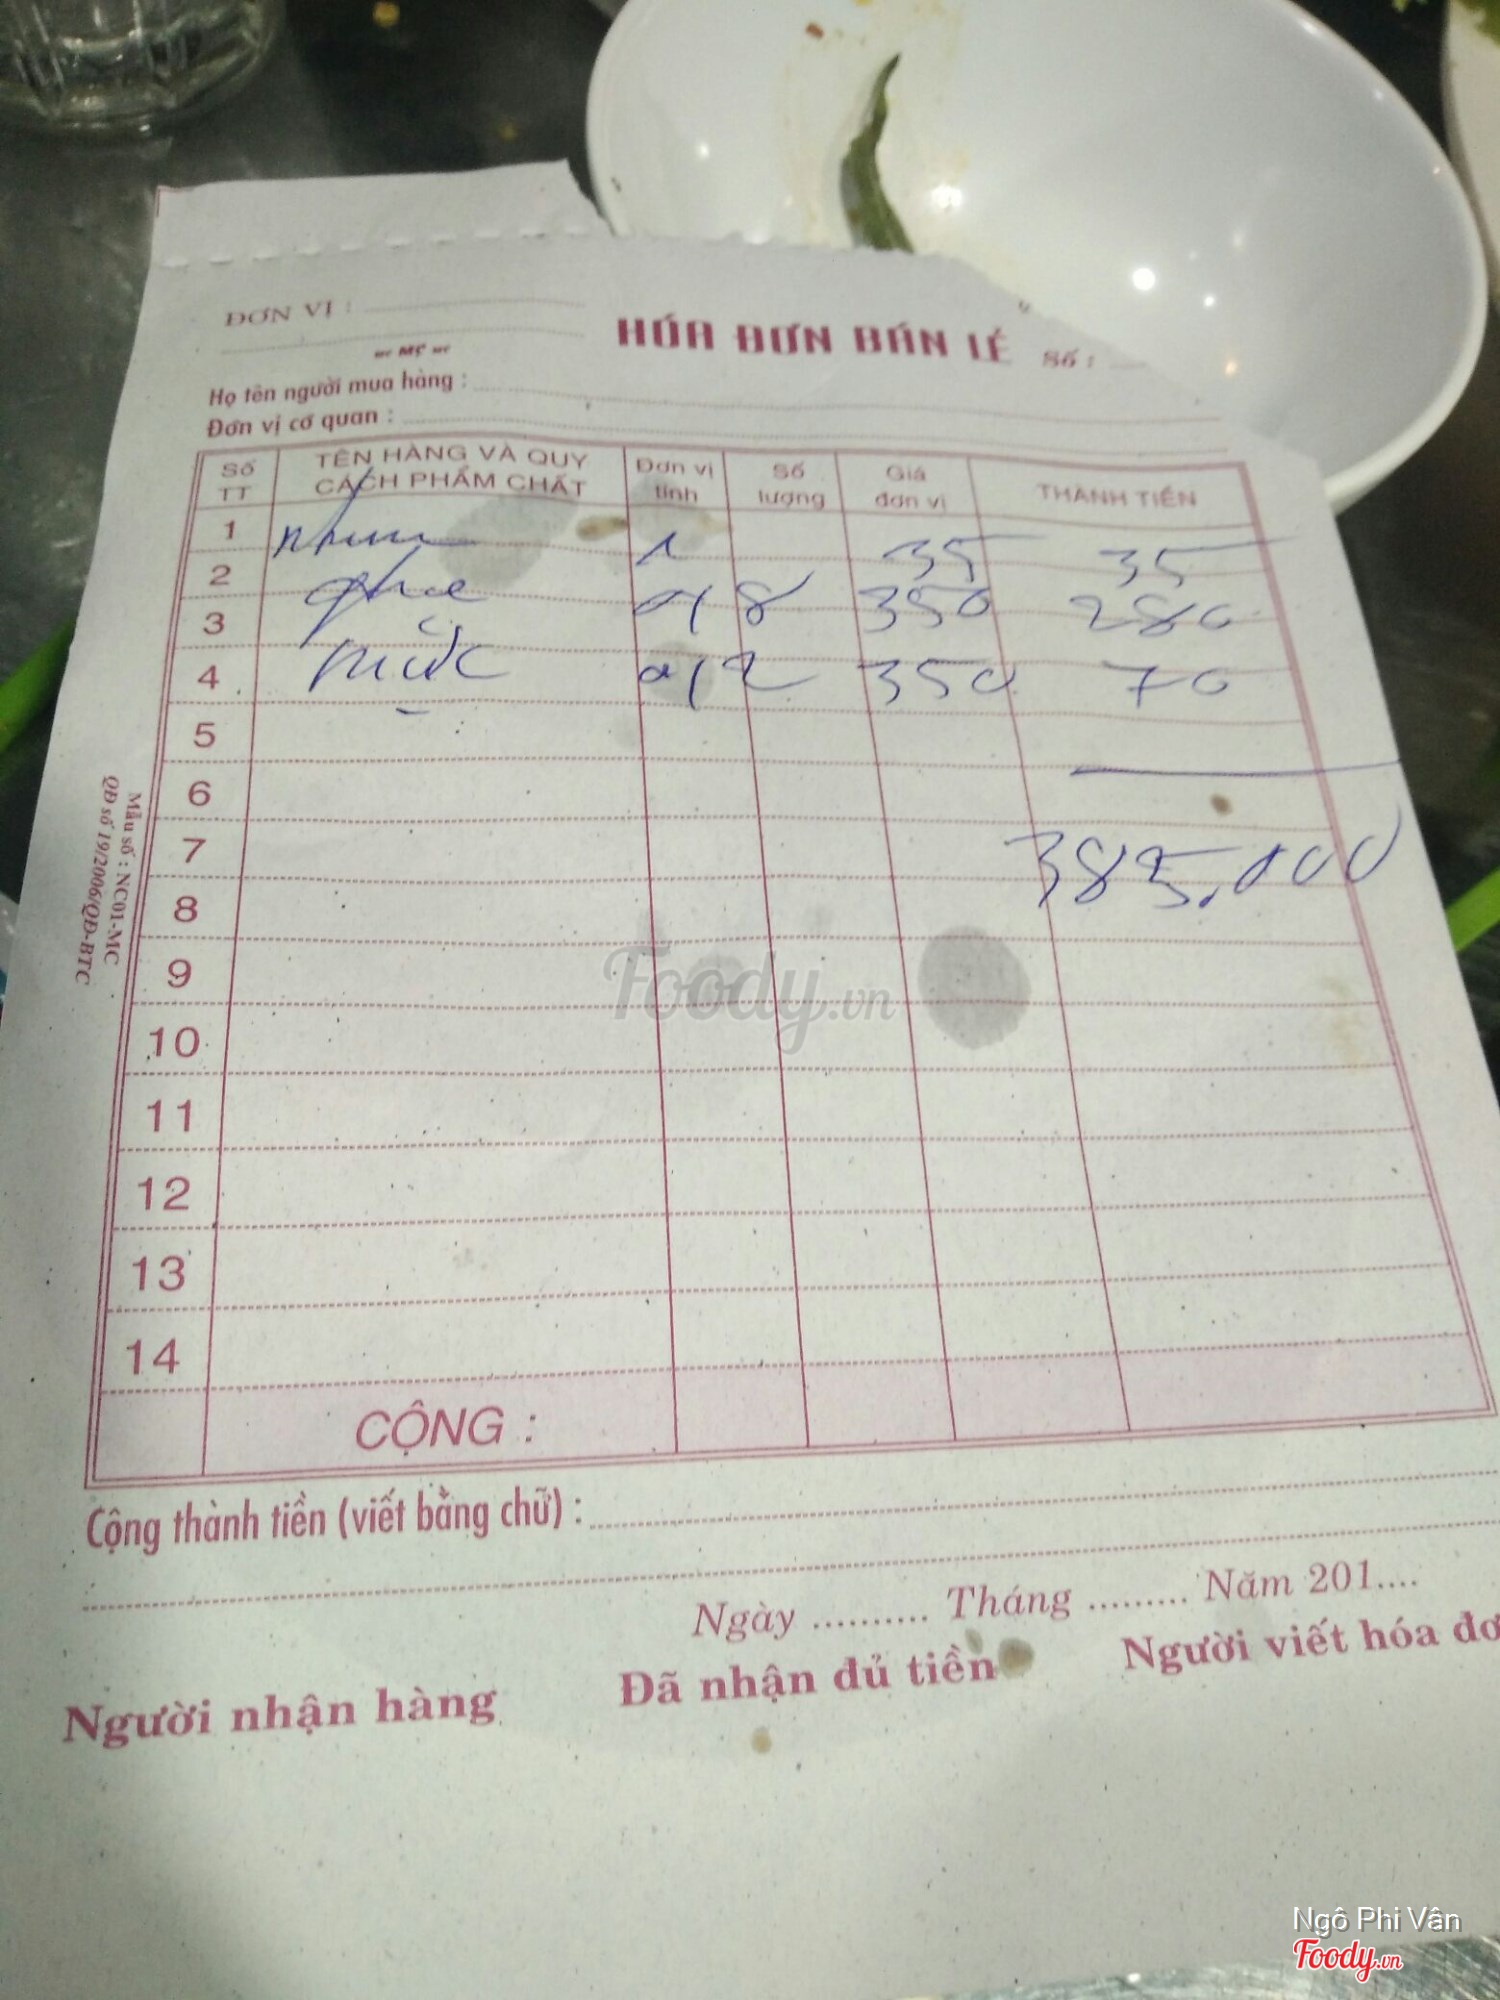 ĐƠN VỊ :
MC
HÓA ĐƠN BÁN LẺ
Số :
Họ tên người mua hàng :
Đơn vị cơ quan :
Số TT
TÊN HÀNG VÀ QUY CÁCH PHẨM CHẤT
Đơn vị tính
Số lượng
Giá đơn vị
THÀNH TIỀN
1 nhum 1 35 35
2 ghẹ 0,8 350 280
3
4 mực 0,2 350 70
5
6
7 385.000
8
9
10
11
12
13
14
CỘNG :
Mẫu số : NC01-MC
QĐ số 19/2006/QĐ-BTC
Foody.vn
Cộng thành tiền (viết bằng chữ) :
Ngày .......... Tháng ......... Năm 201....
Người nhận hàng
Đã nhận đủ tiền
Người viết hóa đơ
Ngô Phi Vân
Foody.vn